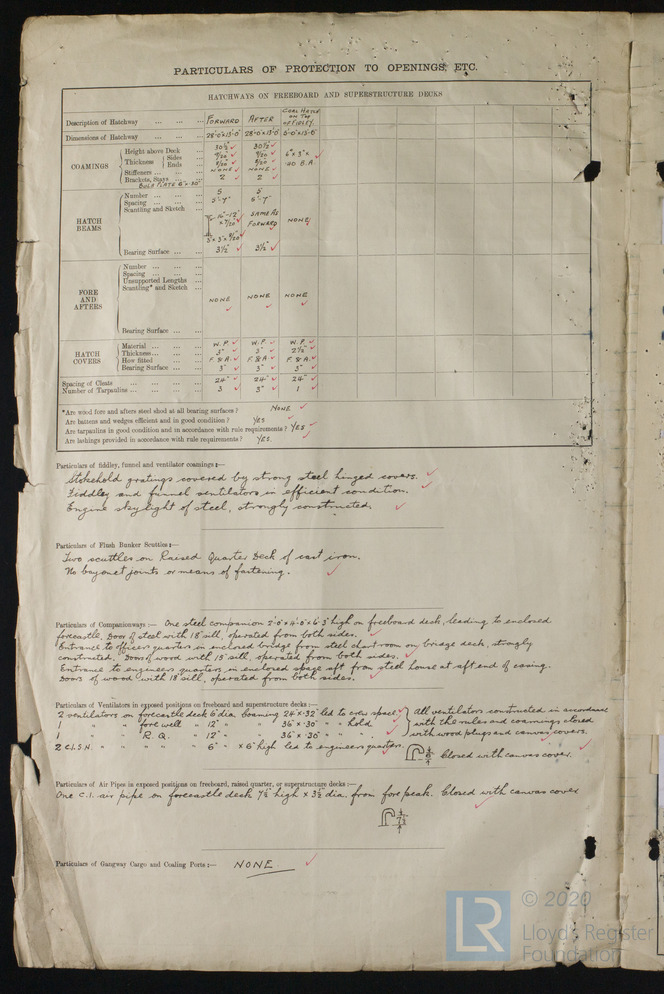 PARTICULARS OF PROTECTION TO OPENINGS, ETC.
HATCHWAYS ON FREEBOARD AND SUPERSTRUCTURE DECKS
Description of Hatchway ... ... ... FORWARD AFTER COAL HATCH ON TOP OF FIDLEY.
Dimensions of Hatchway ... ... ... 28'-0"x13'-0" 28'-0"x13'-0"
COAMINGS
Height above Deck ... 30½" 30½"
Thickness Sides ... 9/20
Ends ... 9/20 .40 B.A.
Stiffeners ... ... ... NONE NONE
Brackets, Stays ... ... 2 2
BULB PLATE 6" x .30"
HATCH BEAMS
Number ... ... ... 5 5
Spacing ... ... ... 5'-7" 5'-7"
Scantling and Sketch ... SAME AS FORWARD NONE
Bearing Surface ... ... 3½" 3½"
FORE AND AFTERS
Number ... ... ...
Spacing ... ... ...
Unsupported Lengths ...
Scantling* and Sketch ...
NONE NONE NONE
Bearing Surface ... ...
HATCH COVERS
Material ... ... ... W.P. W.P. W.P.
Thickness ... ... ... 3" 3" 2½"
How fitted ... ... F.&A. F.&A. F.&A.
Bearing Surface ... ... 3" 3" 3"
Spacing of Cleats ... ... ... ... 24" 24" 24"
Number of Tarpaulins ... ... ... ... 3 3 1
*Are wood fore and afters steel shod at all bearing surfaces? NONE
Are battens and wedges efficient and in good condition? YES
Are tarpaulins in good condition and in accordance with rule requirements? YES
Are lashings provided in accordance with rule requirements? YES.
Particulars of fiddley, funnel and ventilator coamings:—
Stokehold gratings covered by strong steel hinged covers.
Fiddley and funnel ventilators in efficient condition.
Engine skylight of steel, strongly constructed.
Particulars of Flush Bunker Scuttles:—
Two scuttles on Raised Quarter Deck of cast iron.
No bayonet joints or means of fastening.
Particulars of Companionways:— One steel companion 3'-0"x 4'-0"x 6'-3" high on freeboard deck, leading to enclosed
forecastle. Door of steel with 18" sill, operated from both sides.
Entrance to officers quarters in enclosed bridge from steel chart room on bridge deck, strongly
constructed. Doors of wood with 15" sill, operated from both sides.
Entrance to engineers quarters in enclosed space aft from steel house at aft. end of casing.
Doors of wood with 18" sill, operated from both sides.
Particulars of Ventilators in exposed positions on freeboard and superstructure decks:—
2 ventilators on forecastle deck 6" dia. Coaming 24"x .32" led to crew space. All ventilators constructed in accordance
1 " " fore well " 12" " " 36"x .30" " " hold with the rules and coamings closed
1 " " R.Q. " 12" " " 36"x .30" " " " with wood plugs and canvas covers.
2 C.I.S.N. " " " " 6" " x 6" high led to engineers quarters. Closed with canvas cover.
Particulars of Air Pipes in exposed positions on freeboard, raised quarter, or superstructure decks:—
One C.I. air pipe on forecastle deck 7½" high x 3½" dia. from fore peak. Closed with canvas cover
7½"
Particulars of Gangway Cargo and Coaling Ports:— NONE
LR
© 2020
Lloyd's Register
Foundation